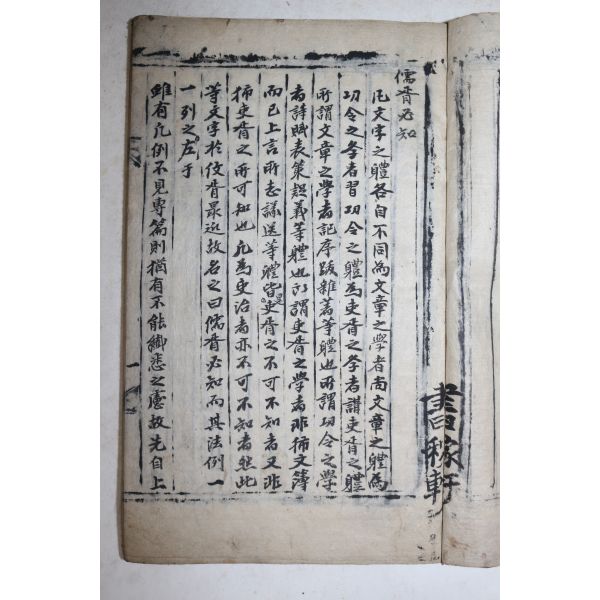 儒胥必知
凡文字之軆各自不同為文章之學者尙文章之軆為
功令之學者習功令之軆為吏胥之學者講吏胥之軆
所謂文章之學者記序跋雜著等軆也所謂功令之學
者詩賦表策疑義等軆也所謂吏胥之學者非特文簿
而已上言所志議送等軆皆是吏胥之不可不知者又非
特吏胥之所可知也凡為吏治者亦不可不知者然此
等文字於吏胥最近故名之曰儒胥必知而其法例一
一列之左于
雖有凡例不見專篇則猶有不能綢悉之慮故先自上
一
書稼軒